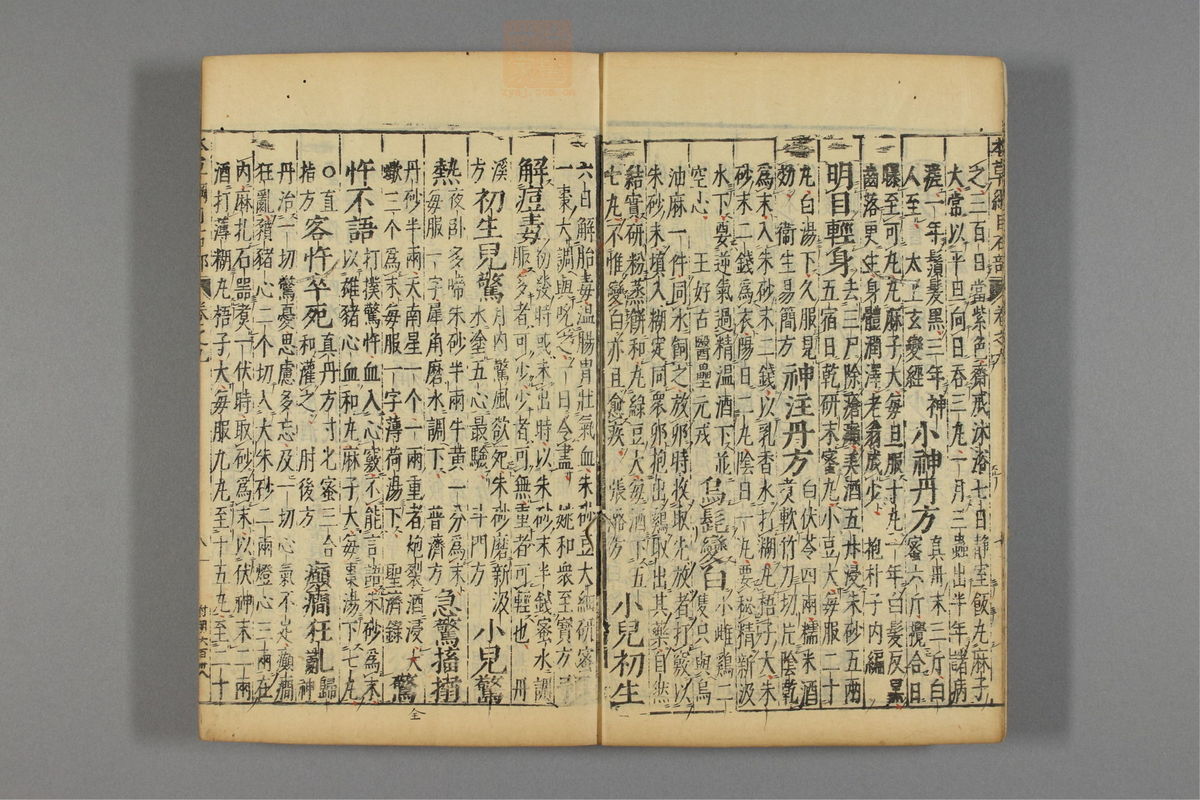 之三百日當紫色齋戒沐浴七日靜室飯丸麻子
大常以平旦向日吞三丸一月三蟲出半年諸病
瘥一年鬚髮黑三年神 小神丹方 真丹末三斤白
人至 太上玄變經 蜜六斤攪合日
曝至可丸丸麻子大每旦服十丸一年白髮反黑
齒落更生身體潤澤老翁成少 抱朴子內編
明目輕身 去三尸除瘡癩美酒五升浸朱砂五兩
五宿日乾研末蜜丸小豆大每服二十
丸白湯下久服見 神注丹方 白伏苓四兩糯米酒
効 衛生易簡方 煮軟竹刀切片陰乾
為末入朱砂末二錢以乳香水打糊丸梧子大朱
砂末二錢為衣陽日二丸陰日一丸要秘精新汲
水下要逆氣過精溫酒下並 烏髭變白 小雌鷄二
空心 王好古醫壘元戎 隻只與烏
油麻一件同水飼之放卵時收取先放者打竅以
朱砂末填入糊定同衆卵抱出鷄取出其藥自然
結實研粉蒸餅和丸綠豆大每酒下五
七丸不惟變白亦且愈疾 張潞方 小兒初生
六日解胎毒溫腸胃壯氣血朱砂豆大細研蜜
一棗大調與吮之一日令盡 姚和衆至寶方
解痘毒 初發時或未出時以朱砂末半錢蜜水調
服多者可少少者可無重者可輕也 丹
溪 初生兒驚 月內驚風欲死朱砂磨新汲
方 水塗五心最驗 斗門方 小兒驚
熱 夜卧多啼朱砂半兩牛黃一分為末
每服一字犀角磨水調下 普濟方 急驚搐搦
丹砂半兩大南星一个一兩重者炮裂酒浸大
蠍三个為末每服一字薄荷湯下 聖濟錄 驚
忤不語 打撲驚忤血入心竅不能言語朱砂為末
以雄豬心血和丸麻子大每棗湯下七丸
○直 客忤卒死 真丹方寸匕蜜三合 癲癇狂亂 歸神
指方 和灌之 肘後方
丹治一切驚憂思慮多忘及一切心氣不足癲癇
狂亂豶豬心二个切入大朱砂二兩燈心三兩在
內麻扎石器煮一伏時取砂為末以伏神末二兩
酒打薄糊丸梧子大每服九丸至十五丸至二十
全